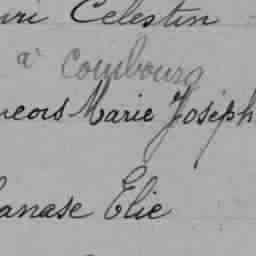 uri Celestin
à Combourg
ncois Marie Joseph
anase Elie